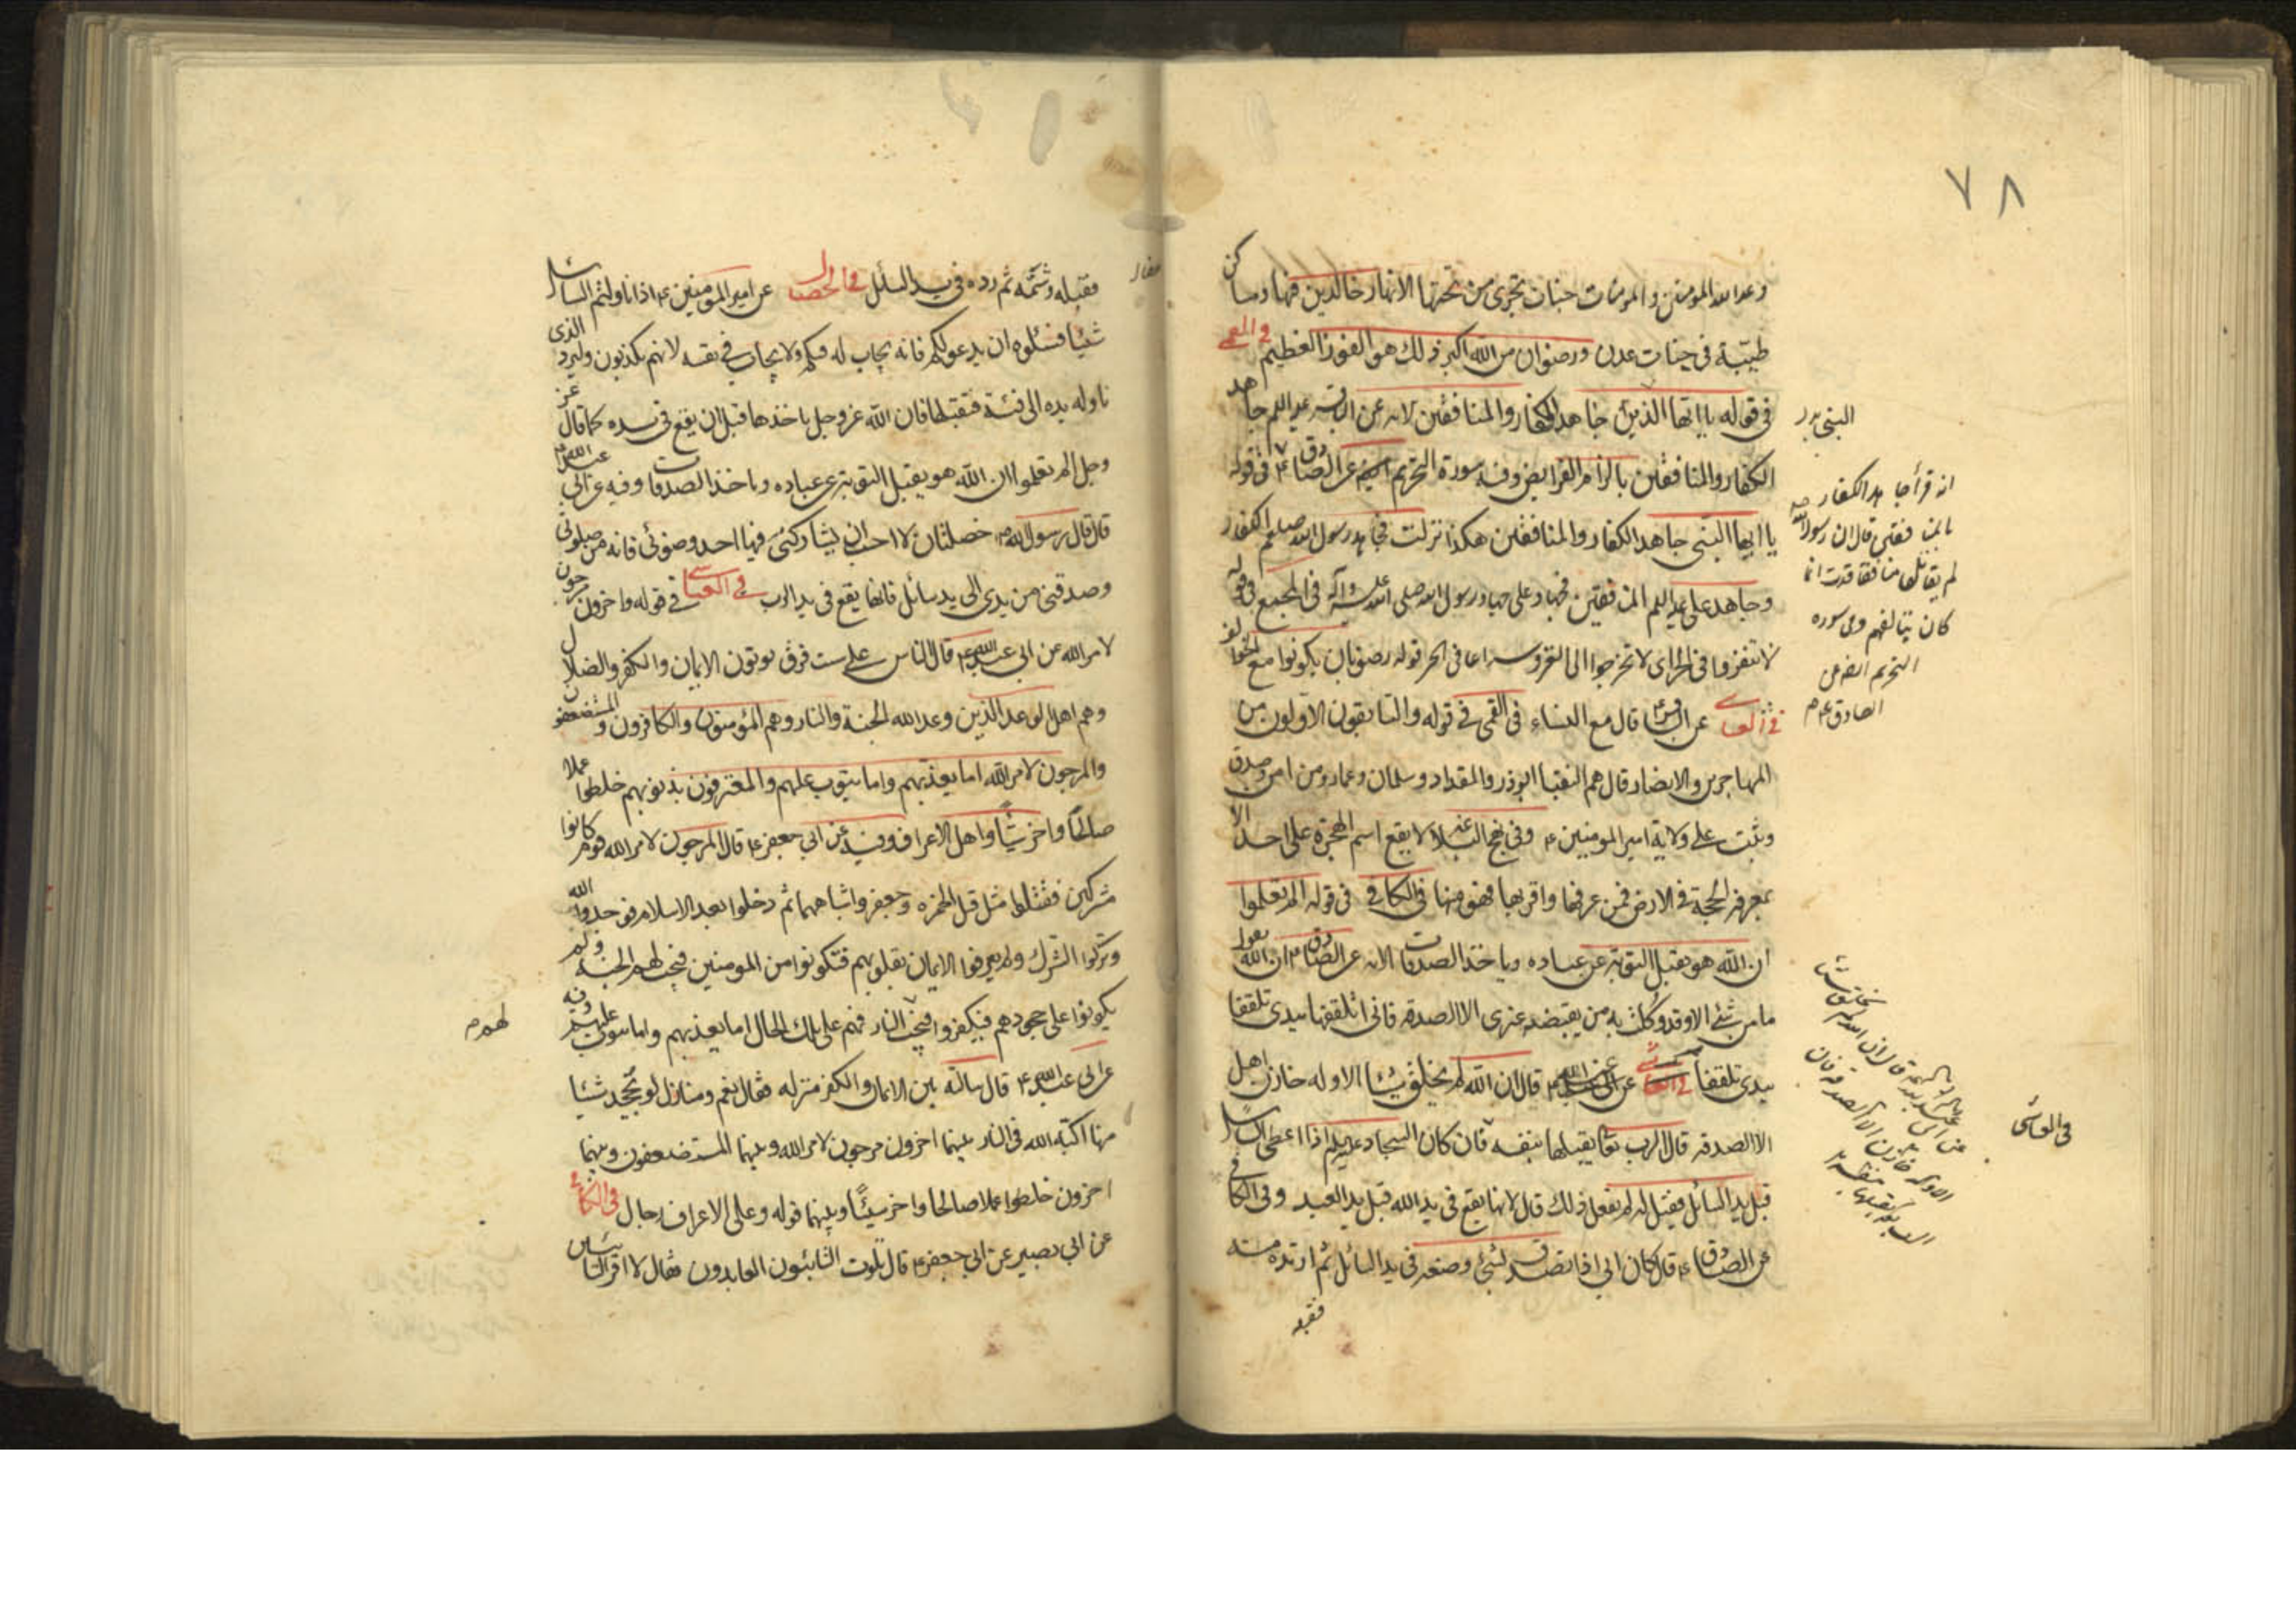 ٧٨
وعد الله المومنين والمومنات جنات تجرى من تحتها الانهار خالدين فيها ومساكن
طيبة فى جنات عدن ورضوان من الله اكبر ذلك هو الفوز العظيم
فى قوله يا ايها الذين جاهد الكفار والمنافقين لانه عن الباقر عليه السلم جاهد
الكفار والمنافقين بالزام الفرايض وفيه سورة التحريم عن الصادق ع فى قوله
يا ايها النبى جاهد الكفار والمنافقين هكذا نزلت فجاهد رسول الله صلعم الكفار
وجاهد على عليه السلم المنافقين فجهاد على جهاد رسول الله صلى الله عليه وآله فى المجمع فى قوله
لا تنفروا فى الحر اى لا تخرجوا الى الغزو سراعا فى الحر قوله رضوا بان يكونوا مع الخوالف
عن الباقر ع قال مع النساء فى القمى فى قوله والسابقون الاولون من
المهاجرين والانصار قال هم النقبا ابوذر والمقداد وسلمان وعمار ومن امن وصدق
وثبت على ولاية امير المومنين ع وفى نهج البلاغه لا يقع اسم الهجرة على احد الا
بمعرفة الحجة فى الارض فمن عرفها واقر بها فهو منها فى الكافى فى قوله الم يعلموا
ان الله هو يقبل التوبة عن عباده وياخذ الصدقات الايه عن الصادق ع ان الله يقول
ما من شئ الا وقد وكلت به من يقبضه غيرى الا الصدقة فانى اتلقفها بيدى تلقفا
بيدى تلقفا عن ابى عبد الله ع قال ان الله لم يخلق شيئا الا وله خازن اهل
الا الصدقة قال الرب تعا يقبلها بنفسه قال كان السجاد عليه السلم اذا اعطى السائل
قبل يد السائل فقيل له لم تفعل ذلك قال لانها يقع فى يد الله قبل يد العبد وفى الكافى
عن الصادق ع قال كان ابى اذا تصدق بشئ وضعه فى يد السائل ثم ارتده منه
فقبله
النبى بدل
انه قرأ جاهد الكفار
بالمنافقين قال ان رسول الله ص
لم يقاتل منافقا قط انما
كان يتالفهم وفى سوره
التحريم ايضا عن
الصادق ع م
فى العياشى
فقبله وشمه ثم رده فى يد السائل فى الخصال عن امير المومنين ع اذا ناولتم السائل
شيئا فسئلوه ان يدعو لكم فانه يجاب له فيكم ولا يجاب فى نفسه لانهم يكذبون وليرد الذى
ناوله يده الى فيه فيقبلها فان الله عز وجل ياخذها قبل ان يقع فى يده كما قال عز
وجل الم تعلموا ان الله هو يقبل التوبة عن عباده وياخذ الصدقات وفيه عن ابى عبد الله ع
قال قال رسول الله ص خصلتان لا احب ان يشاركنى فيها احد وضوئى فانه من صلوتى
وصدقتى من يدى الى يد سائل فانها يقع فى يد الرب فى العياشى فى قوله واخرون مرجون
لامر الله عن ابى عبد الله ع قال الناس على ست فرق يوتون الايمان والكفر والضلال
وهم اهل الوعد الذين وعد الله الجنة والنار وهم المؤمنون والكافرون والمستضعفون
والمرجون لامر الله اما يعذبهم واما يتوب عليهم والمعترفون بذنوبهم خلطوا عملا
صالحا واخر سيئا واهل الاعراف وفيه عن ابى جعفر ع قال المرجون لامر الله قوم كانوا
مشركين فقتلوا مثل قتل حمزه وجعفر واشباههما ثم دخلوا بعد الاسلام فوحدوا الله
وتركوا الشرك ولم يعرفوا الايمان بقلوبهم فتكونوا من المومنين فيجب لهم الجنة ولم
يكونوا على جحودهم فيكفروا فيجب النار فهم على تلك الحال اما يعذبهم واما يتوب عليهم وفيه
لهم م
عن ابى عبد الله ع قال سالته بين الايمان والكفر منزله فقال نعم ومنازل لو يجحد شيئا
منها اكبه الله فى النار بينهما اخرون مرجون لامر الله وبينهما المستضعفون وبينهما
اخرون خلطوا عملا صالحا واخر سيئا وبينهما قوله وعلى الاعراف رجال فى الكافى
عن ابى بصير عن ابى جعفر ع قال تلوت التائبون العابدون فقال لا اقرا التائبين